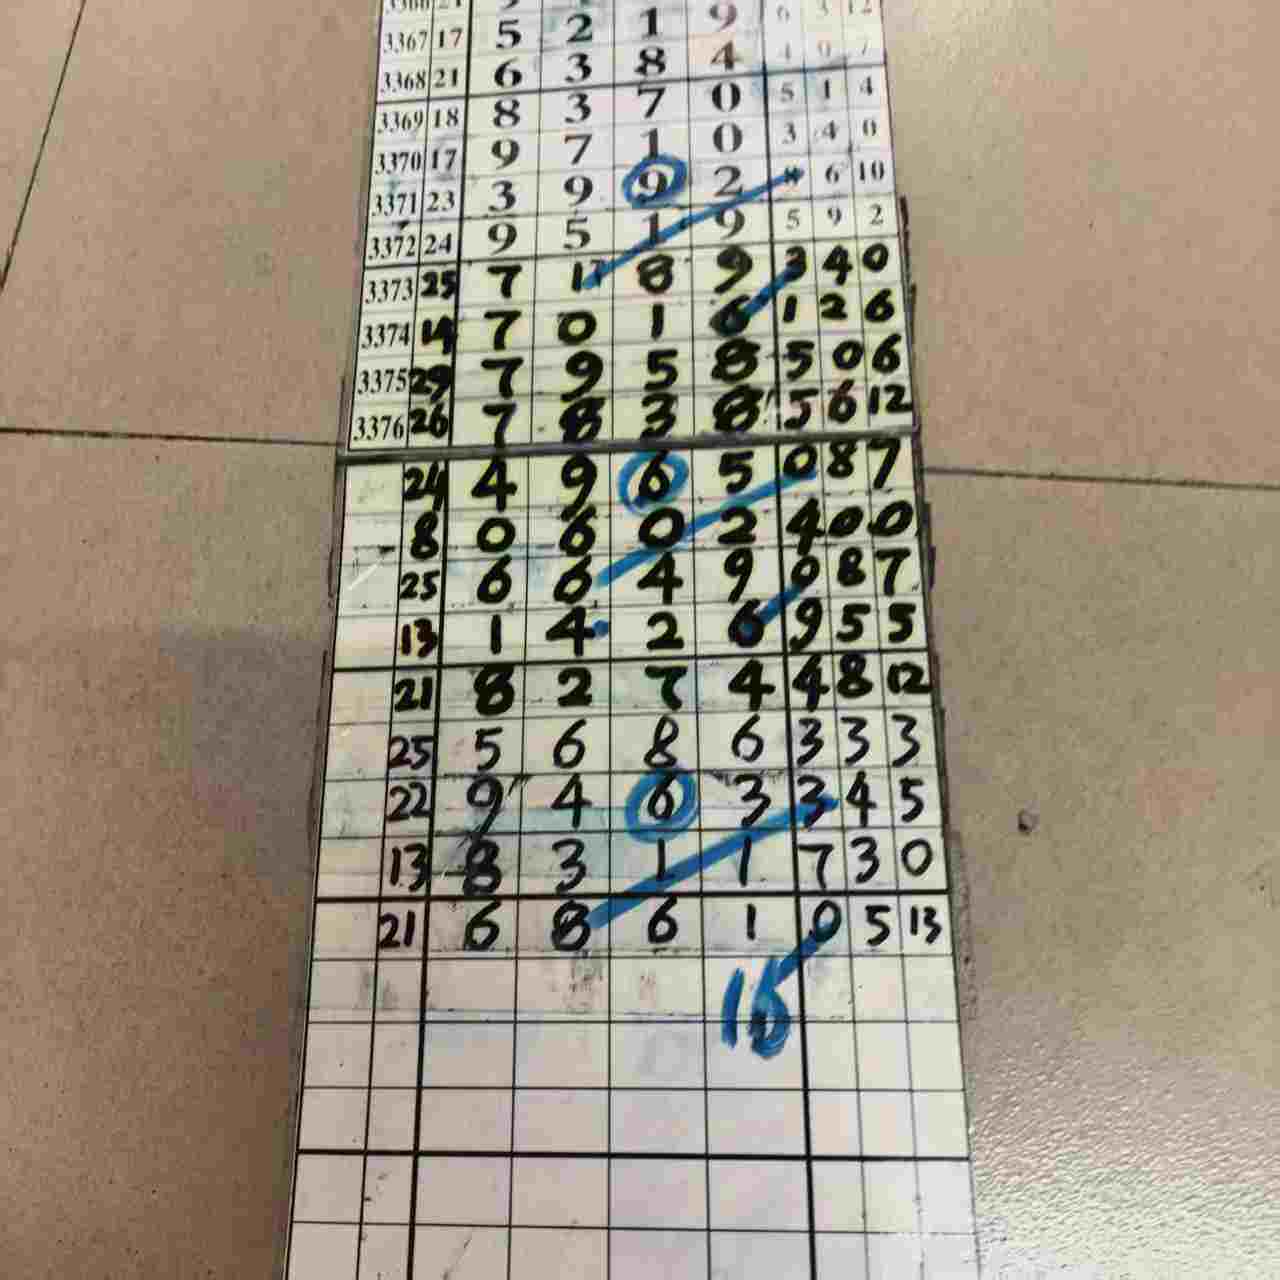 3367 17 5 2 1 9 6 3 12
3368 21 6 3 8 4 4 9 7
3369 18 8 3 7 0 5 1 4
3370 17 9 7 1 0 3 4 0
3371 23 3 9 9 2 8 6 10
3372 24 9 5 1 9 5 9 2
3373 25 7 1 8 9 3 4 0
3374 14 7 0 1 6 1 2 6
3375 29 7 9 5 8 5 0 6
3376 26 7 8 3 8 5 6 12
24 4 9 6 5 0 8 7
8 0 6 0 2 4 0 0
25 6 6 4 9 0 8 7
13 1 4 2 6 9 5 5
21 8 2 7 4 4 8 12
25 5 6 8 6 3 3 3
22 9 4 6 3 3 4 5
13 8 3 1 1 7 3 0
21 6 8 6 1 0 5 13